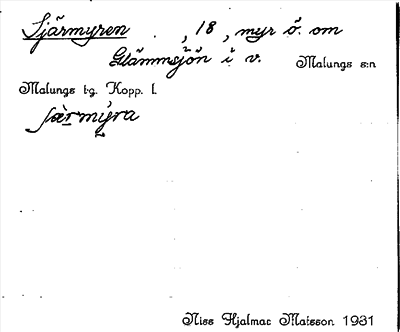 Sjärmyren . , 18 , myr ö. om
Glämmsjön i v. Malungs s:n
Malungs t:g. Kopp. l.
ʃæ̀rmýra
Niss Hjalmar Matsson 1931